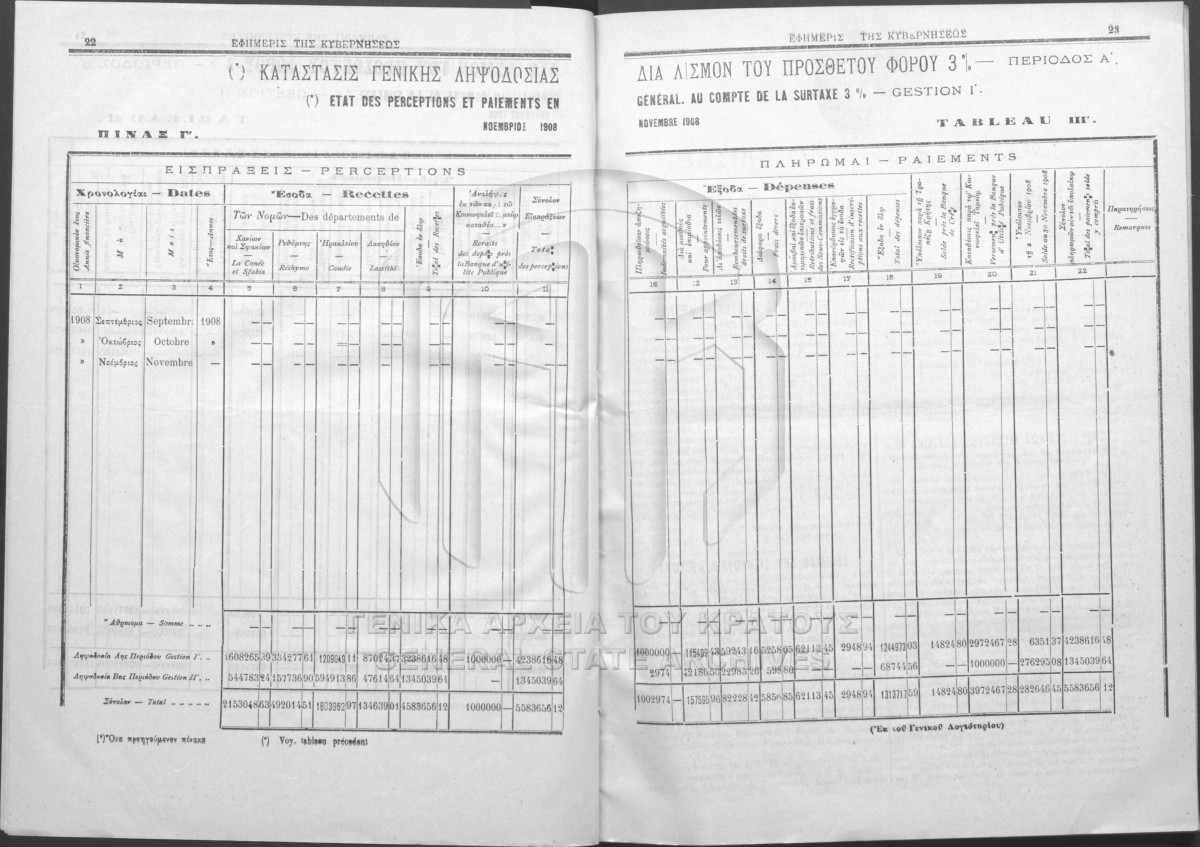 22
ΕΦΗΜΕΡΙΣ ΤΗΣ ΚΥΒΕΡΝΗΣΕΩΣ
(*) ΚΑΤΑΣΤΑΣΙΣ ΓΕΝΙΚΗΣ ΛΗΨΟΔΟΣΙΑΣ
(*) ETAT DES PERCEPTIONS ET PAIEMENTS EN
ΝΟΕΜΒΡΙΟΣ 1908
ΠΙΝΑΞ Γ'.
ΕΙΣΠΡΑΞΕΙΣ — PERCEPTIONS
Χρονολογίαι — Dates
Ἔσοδα — Recettes
Τῶν Νομῶν — Des départements de
Οἰκονομικὸν ἔτος
Année financière
Μὴν
Mois
Ἔτος — Année
Χανίων καὶ Σφακίων
La Canée et Sfakia
Ρεθύμνης
Réthymo
Ἡρακλείου
Candie
Λασηθίου
Lassithi
Ἔσοδα ἐν ὅλῳ
Total des Recettes
Retraits des dépôts près la Banque d'utilité Publique
Σύνολον Εἰσπράξεων
Total des perceptions
1 2 3 4 5 6 7 8 9 10 11
1908 Σεπτέμβριος Septembr: 1908 — — — — — — — — — — — — — —
» Ὀκτώβριος Octobre » — — — — — — — — — — — — — —
» Νοέμβριος Novembre — — — — — — — — — — — — — — —
Ἄθροισμα — Somme .. .. .. — — — — — — — — — — — — — —
Ληψοδοσία Αης Περιόδου Gestion I'. .. 1608265 39 334277 61 1209049 11 87024 37 3238616 48 1000000 — 4238616 48
Ληψοδοσία Βας Περιόδου Gestion II'. .. 544783 24 157736 90 594913 86 47614 64 1345039 64 — 1345039 64
Σύνολον — Total .. .. .. .. 2153048 63 492014 51 1803962 97 134639 01 4583656 12 1000000 — 5583656 12
(*) Ὅρα προηγούμενον πίνακα
(*) Voy. tableau précédent
23
ΕΦΗΜΕΡΙΣ ΤΗΣ ΚΥΒΕΡΝΗΣΕΩΣ
ΔΙΑ Λ)ΣΜΟΝ ΤΟΥ ΠΡΟΣΘΕΤΟΥ ΦΟΡΟΥ 3 % — ΠΕΡΙΟΔΟΣ Α'.
GÉNÉRAL. AU COMPTE DE LA SURTAXE 3 % — GESTION I'.
NOVEMBRE 1908
TABLEAU III'.
ΠΛΗΡΩΜΑΙ — PAIEMENTS
Ἔξοδα — Dépenses
Indemnités acquittées
Διὰ μισθοὺς καὶ ἐπιμίσθια
Pour appointements
Remboursements droits de surtaxe
Διάφορα ἔξοδα
Frais divers
Rétributions et frais des Sous-Commissions
Rectification d'inscriptions aux recettes
Ἔξοδα ἐν ὅλῳ
Total des dépenses
Ὑπόλοιπον παρὰ τῇ Τραπέζῃ Κρήτης
Solde près la Banque de Crète
Versements près la Banque d'Utilité Publique
Ὑπόλοιπον τῇ 2 Νοεμβρίου 1908
Solde au 30 Novembre 1908
Total des paiements, solde y compris
Παρατηρήσεις
Remarques
16 12 13 14 15 17 18 19 20 21 22
1000000 — 115409 43 59243 16 5258 05 62113 45 2948 94 1244973 03 14824 80 2972467 28 6351 37 4238616 48
2974 — 42186 50 22985 26 598 80 — — 68744 56 — 1000000 — 276295 08 1345039 64
1002974 — 157595 96 82228 42 5856 85 62113 45 2948 94 1313717 59 14824 80 3972467 28 282646 45 5583656 12
(Ἐκ τοῦ Γενικοῦ Λογιστηρίου)
ΓΕΝΙΚΑ ΑΡΧΕΙΑ ΤΟΥ ΚΡΑΤΟΥΣ
GENERAL STATE ARCHIVES